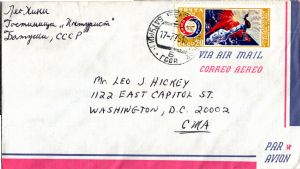 Лео Хики
Гостиница "Интурист"
Батуми, СССР
17-7-75
VIA AIR MAIL
CORREO AEREO
MR. LEO J. HICKEY
1122 EAST CAPITOL ST.
WASHINGTON, D.C. 20002
США
PAR
AVION